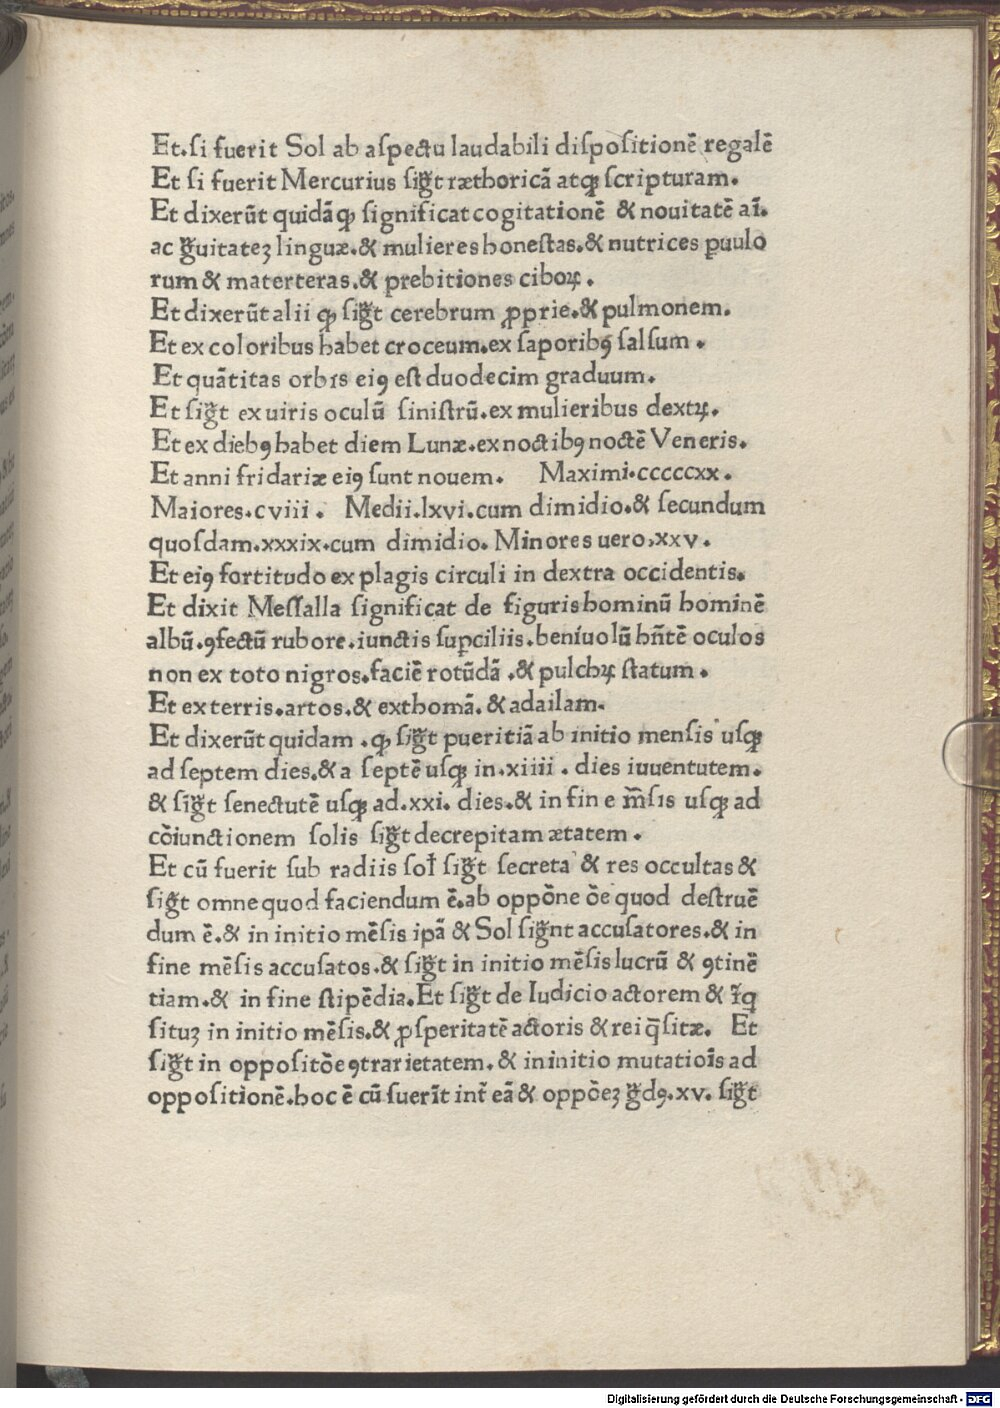 Et.si fuerit Sol ab aſpectu laudabili diſpoſitionē regalē
Et ſi fuerit Mercurius ſigt̃ ræthoricā atqꝫ ſcripturam.
Et dixerūt quidā ꝙ ſignificat cogitationē & nouitatē aī.
ac g̃uitateꝫ linguæ.& mulieres honeſtas.& nutrices paulo
rum & materteras.& prebitiones ciboꝝ.
Et dixerūt alii ꝙ ſigt̃ cerebrum ꝓprie.& pulmonem.
Et ex coloribus habet croceum.ex ſaporibꝰ ſalſum.
Et quātitas orbis eiꝰ eſt duodecim graduum.
Et ſigt̃ ex uiris oculū ſiniſtrū.ex mulieribus dextꝝ.
Et ex diebꝰ habet diem Lunæ.ex noctibꝰ noctē Veneris.
Et anni fridariæ eiꝰ ſunt nouem. Maximi.cccccxx.
Maiores.cviii. Medii.lxvi.cum dimidio.& ſecundum
quoſdam.xxxix.cum dimidio. Minores uero.xxv.
Et eiꝰ fortitudo ex plagis circuli in dextra occidentis.
Et dixit Meſſalla ſignificat de figuris hominū hominē
albū.ꝯfectū rubore.iunctis ſuꝑciliis.beniuolū hñtē oculos
non ex toto nigros.faciē rotūdā.& pulchꝝ ſtatum.
Et ex terris.artos.& exthomā.& adailam.
Et dixerūt quidam.ꝙ ſigt̃ pueritiā ab initio menſis uſqꝫ
ad ſeptem dies.& a ſeptē uſqꝫ in.xiiii. dies iuuentutem.
& ſigt̃ ſenectutē uſqꝫ ad.xxi. dies.& in fine m̃ſis uſqꝫ ad
cōiunctionem ſolis ſigt̃ decrepitam ætatem.
Et cū fuerit ſub radiis ſoł ſigt̃ ſecreta & res occultas &
ſigt̃ omne quod faciendum ē.ab oppōne ōe quod deſtruē
dum ē.& in initio mēſis ipā & Sol ſigñt accuſatores.& in
fine mēſis accuſatos.& ſigt̃ in initio mēſis lucrū & ꝯtinē
tiam.& in fine ſtipēdia.Et ſigt̃ de Iudicio actorem & r̄q
ſituꝫ in initio mēſis.& ꝓſperitatē actoris & rei q̄ſitæ. Et
ſigt̃ in oppoſitōe ꝯtrarietatem.& in initio mutatiōis ad
oppoſitionē.hoc ē cū fuerīt int̄ eā & oppōeꝫ g̃dꝰ.xv. ſigt̃
Digitalisierung gefördert durch die Deutsche Forschungsgemeinschaft - DFG